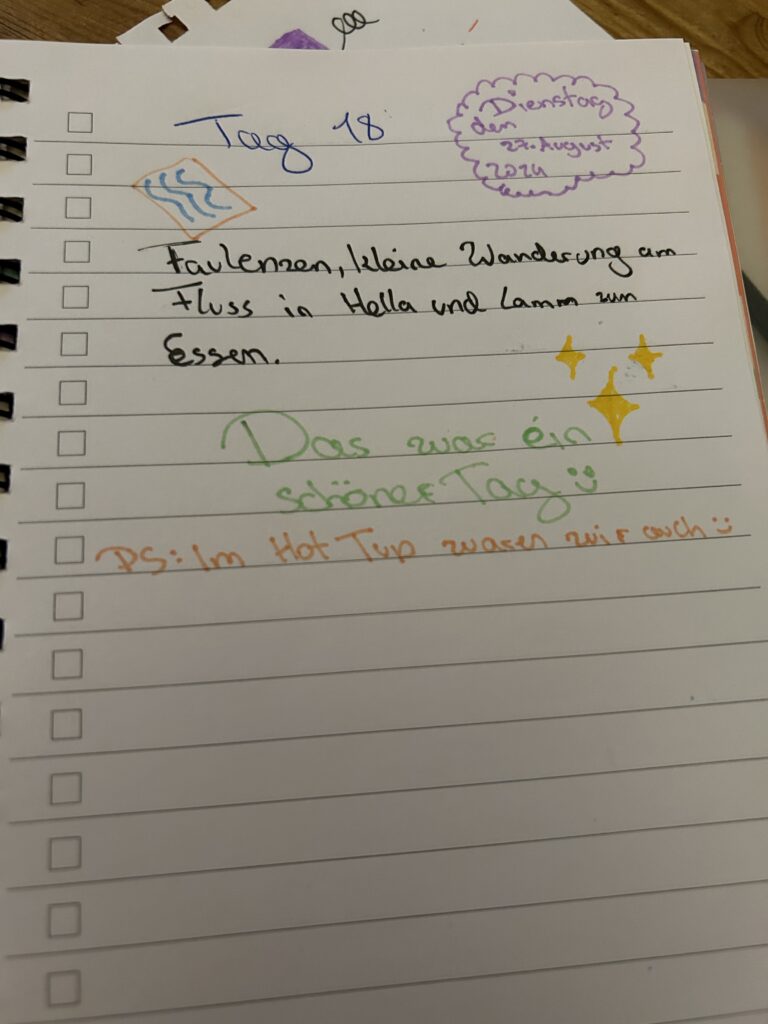 Tag 18
Dienstag
den
27. August
2024
Faulenzen, kleine Wanderung am
Fluss in Hella und Lamm zum
Essen.
Das war ein
schöner Tag :)
PS: Im Hot Tup waren wir auch :)